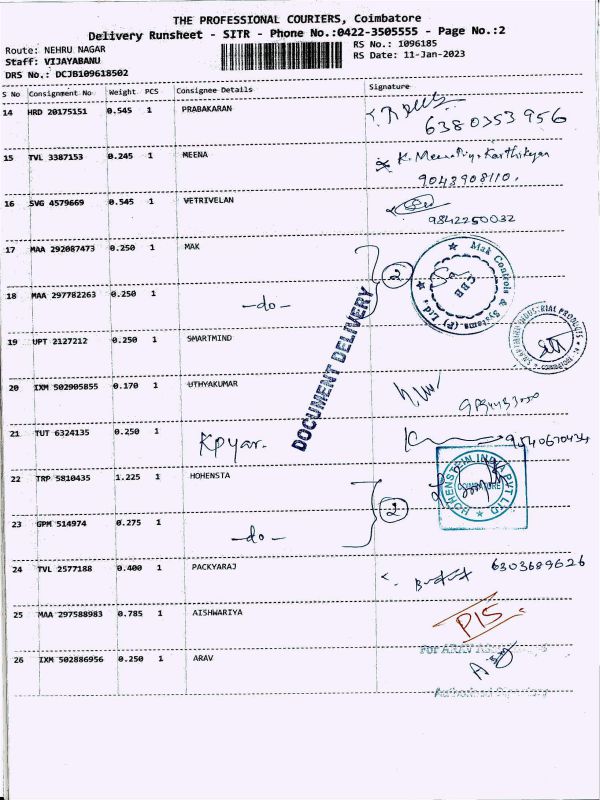 THE PROFESSIONAL COURIERS, Coimbatore
Delivery Runsheet - SITR - Phone No.:0422-3505555 - Page No.:2
Route: NEHRU NAGAR
RS No.: 1096185
Staff: VIJAYABANU
RS Date: 11-Jan-2023
DRS No.: DCJB109618502
S No Consignment No Weight PCS Consignee Details Signature
14 HRD 20175151 0.545 1 PRABAKARAN
6380353956
15 TVL 3387153 0.245 1 MEENA K. Meena Karthikeyan
9042908110.
16 SVG 4579669 0.545 1 VETRIVELAN
9842250032
17 MAA 292087473 0.250 1 MAK
2
Mak Controls & Systems (P) Ltd.
CBE
18 MAA 297782263 0.250 1
-do-
DOCUMENT DELIVERY
19 UPT 2127212 0.250 1 SMARTMIND
INDUSTRIAL PRODUCTS
COIMBATORE
20 IXM 502905855 0.170 1 UTHYAKUMAR
21 TUT 6324135 0.250 1 Kpyar. 9540670434
22 TRP 5810435 1.225 1 HOHENSTA
2
HOHENSTEIN INDIA PVT LTD
COIMBATORE
23 GPM 514974 0.275 1
-do-
24 TVL 2577188 0.400 1 PACKYARAJ 6303689626
25 MAA 297588983 0.785 1 AISHWARIYA
PIS
For ARAV
26 IXM 502886956 0.250 1 ARAV
Authorised Signatory